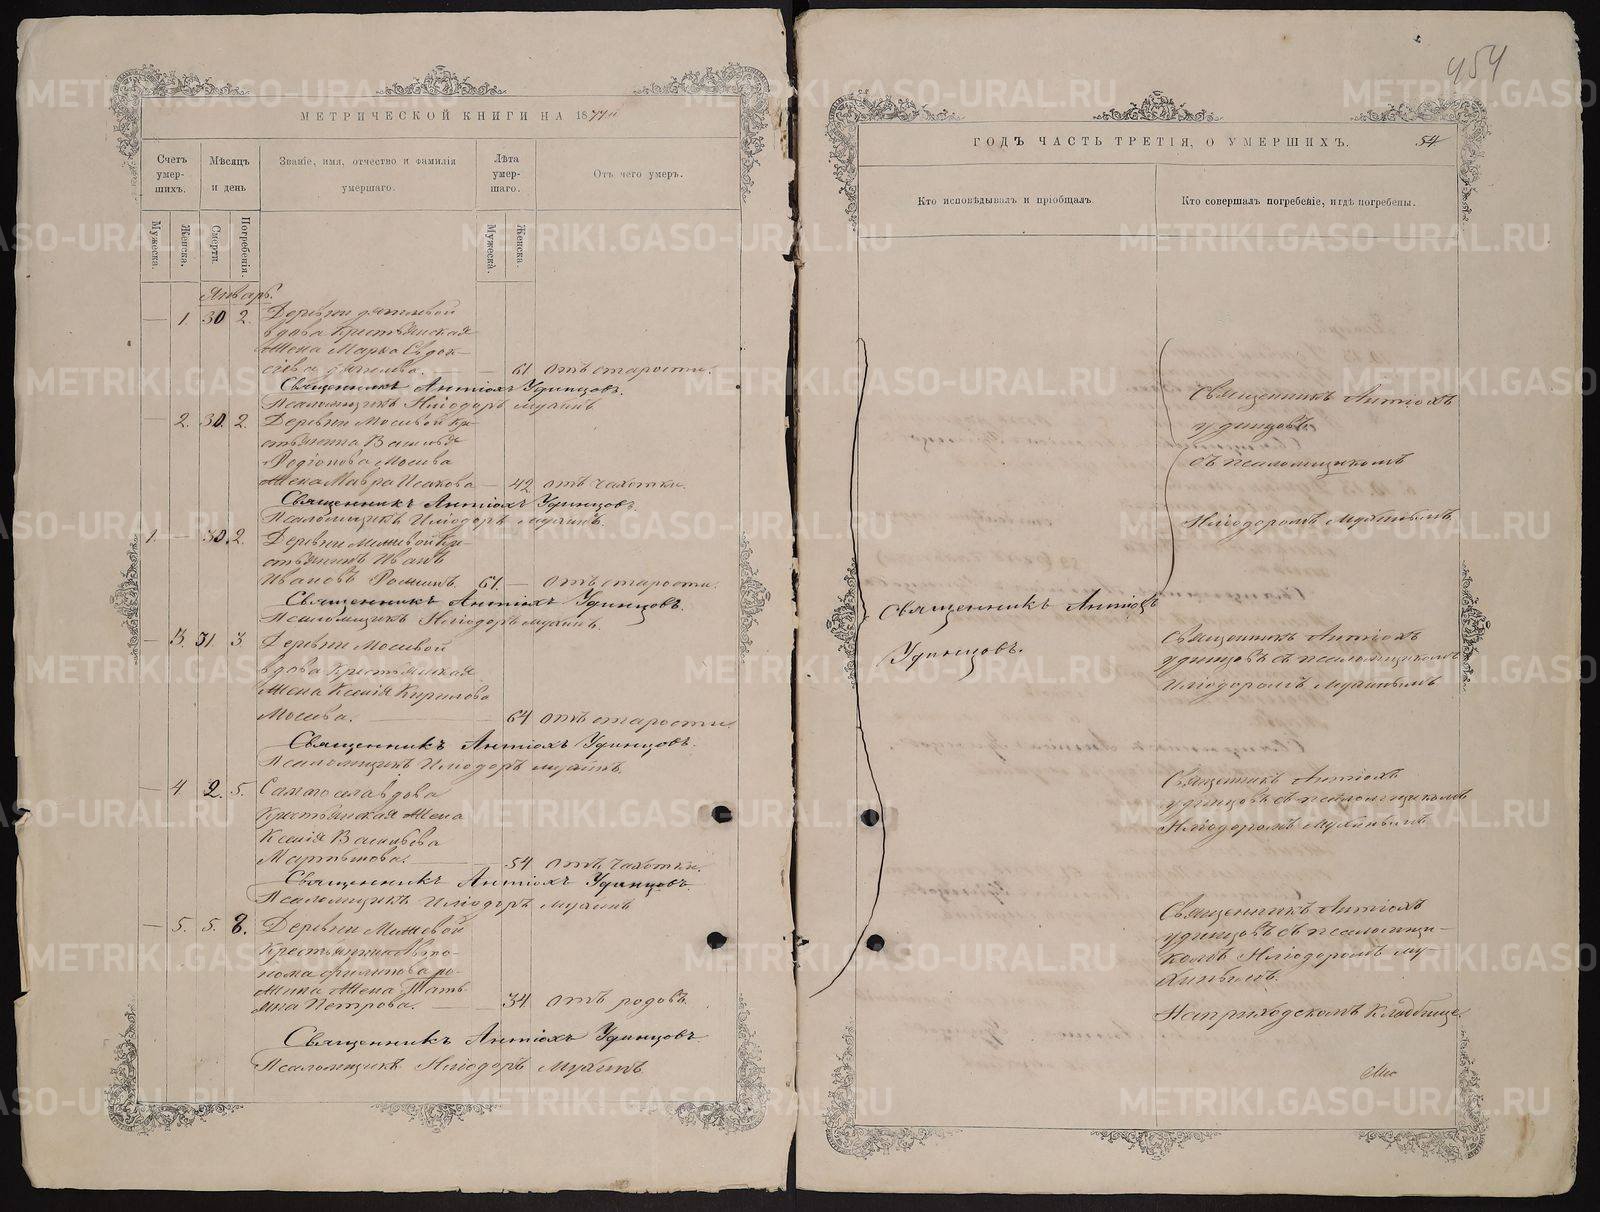 МЕТРИЧЕСКОЙ КНИГИ НА 1877й
Счетъ умер-шихъ.
Мѣсяцъ и день
Званіе, имя, отчество и фамилія умершаго.
Лѣта умер-шаго.
Отъ чего умеръ.
Мужеска.
Женска.
Смерти.
Погребенія.
Мужеска.
Женска.
Январь.
— 1. 30 2. Деревни
вдова Крестьянская
жена Марѳа Евдок-
— 61 отъ старости.
Священникъ Антіохъ Удинцовъ.
Псаломщикъ Иліодоръ Мухинъ
— 2. 30. 2. Деревни Мосиной Кре-
стьянина Василья
Родіонова Мосина
жена Мавра Исакова — 42 отъ чахотки.
Священникъ Антіохъ Удинцовъ.
Псаломщикъ Иліодоръ Мухинъ.
1. — 30. 2. Деревни Кре-
стьянинъ Иванъ
Ивановъ 61. — отъ старости.
Священникъ Антіохъ Удинцовъ.
Псаломщикъ Иліодоръ Мухинъ.
— 3. 31. 3. Деревни Мосиной
вдова Крестьянская
жена Ксенія Кирилова
Мосина. — 64 отъ старости
Священникъ Антіохъ Удинцовъ.
Псаломщикъ Иліодоръ Мухинъ.
— 4. 2. 5. Самаго села вдова
Крестьянская жена
Ксенія Васильева
— 54 отъ чахотки.
Священникъ Антіохъ Удинцовъ.
Псаломщикъ Иліодоръ Мухинъ
— 5. 5. 8. Деревни
Крестьянина Авто-
нома Филипова Ро-
мина жена Тать-
яна Петрова. — 34 отъ родовъ
Священникъ Антіохъ Удинцовъ
Псаломщикъ Иліодоръ Мухинъ
454
ГОДЪ ЧАСТЬ ТРЕТІЯ, О УМЕРШИХЪ.
54
Кто исповѣдывалъ и пріобщалъ.
Кто совершалъ погребеніе, и гдѣ погребены.
Священникъ Антіохъ
Удинцовъ.
Священникъ Антіохъ
Удинцовъ
съ псаломщикомъ
Иліодоромъ Мухинымъ
Священникъ Антіохъ
Удинцовъ съ псаломщикомъ
Иліодоромъ Мухинымъ
Священникъ Антіохъ
Удинцовъ съ псаломщикомъ
Иліодоромъ Мухинымъ
Священникъ Антіохъ
Удинцовъ съ псаломщи-
комъ Иліодоромъ Му-
хинымъ.
На приходскомъ кладбище.
METRIKI.GASO-URAL.RU